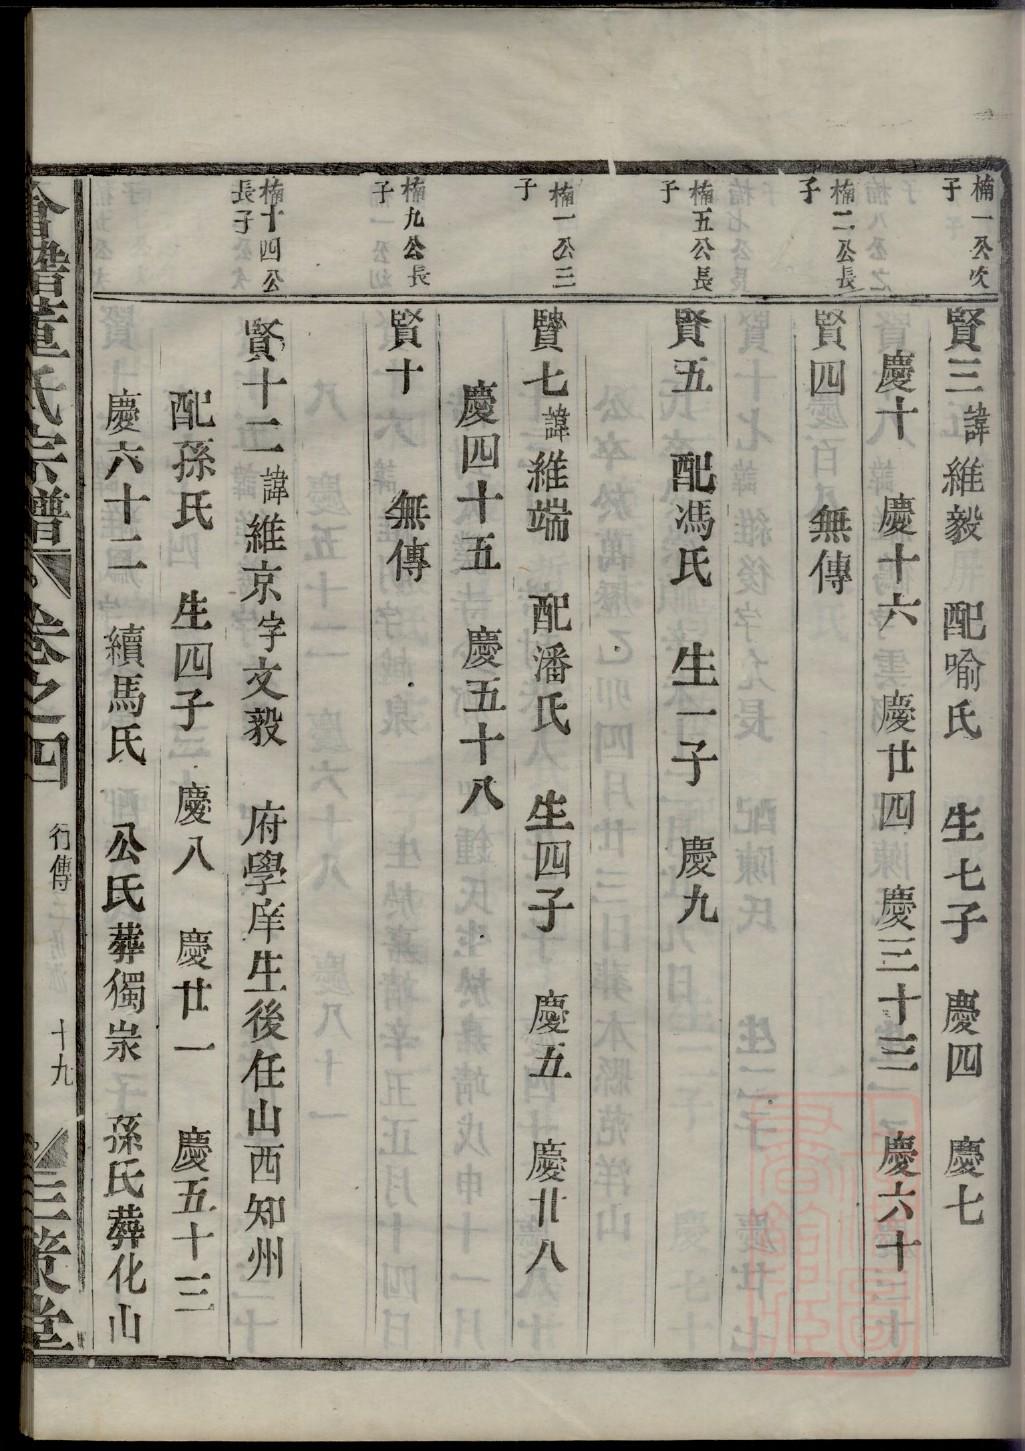 楠一公次子
賢三諱維毅 配喻氏 生七子 慶四 慶七
慶十 慶十六 慶廿四 慶三十三 慶六十
楠二公長子
賢四 無傳
楠五公長子
賢五 配馮氏 生一子 慶九
楠一公三子
賢七諱維端 配潘氏 生四子 慶五 慶廿八
慶四十五 慶五十八
楠九公長子
賢十 無傳
楠十四公長子
賢十二諱維京字文毅 府學庠生後任山西知州
配孫氏 生四子 慶八 慶廿一 慶五十三
慶六十二 續馬氏 公氏葬獨泶 孫氏葬化山
會稽董氏宗譜 卷之四 行傳 十九 三策堂